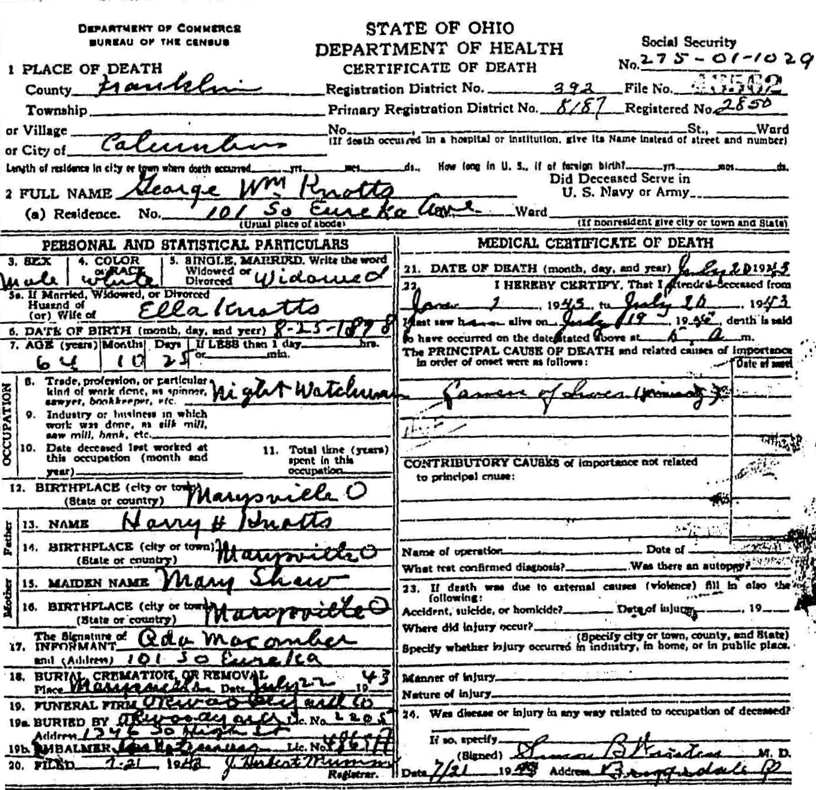 DEPARTMENT OF COMMERCE
BUREAU OF THE CENSUS
STATE OF OHIO
DEPARTMENT OF HEALTH
CERTIFICATE OF DEATH
Social Security
No. 275-01-1029
1 PLACE OF DEATH
County Franklin
Registration District No. 392 File No.
Township
Primary Registration District No. 8187 Registered No. 2850
or Village
or City of Columbus
No. St., Ward
(If death occurred in a hospital or institution, give its Name instead of street and number)
Length of residence in city or town where death occurred yrs. mos. ds., How long in U. S., if of foreign birth? yrs. mos. ds.
Did Deceased Serve in
U. S. Navy or Army
2 FULL NAME George Wm Knotts
(a) Residence. No. 101 So Eureka Ave Ward
(Usual place of abode) (If nonresident give city or town and State)
PERSONAL AND STATISTICAL PARTICULARS
3. SEX Male
4. COLOR or RACE white
5. SINGLE, MARRIED. Write the word
Widowed or Divorced Widowed
5a. If Married, Widowed, or Divorced
Husand of
(or) Wife of Ella Knotts
6. DATE OF BIRTH (month, day, and year) 8-25-1878
7. AGE (years) Months Days If LESS than 1 day hrs.
64 10 25 or min.
OCCUPATION
8. Trade, profession, or particular
kind of work done, as spinner,
sawyer, bookkeeper, etc. Night Watchman
9. Industry or business in which
work was done, as silk mill,
saw mill, bank, etc.
10. Date deceased last worked at
this occupation (month and
year)
11. Total time (years)
spent in this
occupation
12. BIRTHPLACE (city or town)
(State or country) Marysville O
Father
13. NAME Harry H Knotts
14. BIRTHPLACE (city or town)
(State or country) Marysville O
Mother
15. MAIDEN NAME Mary Shaw
16. BIRTHPLACE (city or town)
(State or country) Marysville O
17. The Signature of
INFORMANT Oda Macomber
and (Address) 101 So Eureka
18. BURIAL, CREMATION, OR REMOVAL
Place Marysville Date July 22 1943
19. FUNERAL FIRM
19a. BURIED BY Lic. No. 2205
Address 1346 So High St
19b. EMBALMER Lic. No.
20. FILED 7-21 1943 J Herbert Mummy
Registrar.
MEDICAL CERTIFICATE OF DEATH
21. DATE OF DEATH (month, day, and year) July 20 1943
22. I HEREBY CERTIFY, That I attended deceased from
1943 to July 20 1943
I last saw him alive on July 19 19 death is said
to have occurred on the date stated above at a m.
The PRINCIPAL CAUSE OF DEATH and related causes of importance
in order of onset were as follows:
Date of onset
of Liver
CONTRIBUTORY CAUSES of importance not related
to principal cause:
Name of operation Date of
What test confirmed diagnosis? Was there an autopsy?
23. If death was due to external causes (violence) fill in also the
following:
Accident, suicide, or homicide? Date of injury 19
Where did injury occur?
(Specify city or town, county, and State)
Specify whether injury occurred in industry, in home, or in public place.
Manner of injury
Nature of injury
24. Was disease or injury in any way related to occupation of deceased?
If so, specify
(Signed) M. D.
Date 7/21 1943 Address Briggsdale O